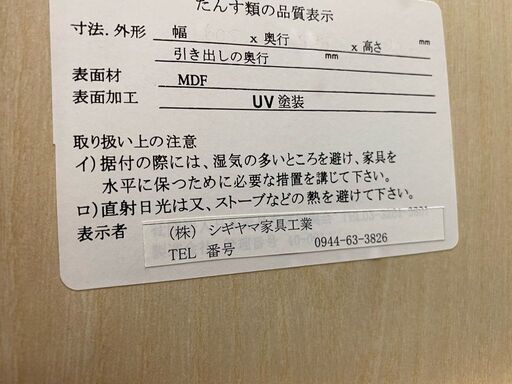 たんす類の品質表示
寸法.外形 幅 x 奥行 x 高さ mm
引き出しの奥行 mm
表面材 MDF
表面加工 UV塗装
取り扱い上の注意
イ)据付の際には、湿気の多いところを避け、家具を
水平に保つために必要な措置を講じて下さい。
ロ)直射日光は又、ストーブなどの熱を避けて下さい。
表示者 (株) シギヤマ家具工業
TEL 番号 0944-63-3826